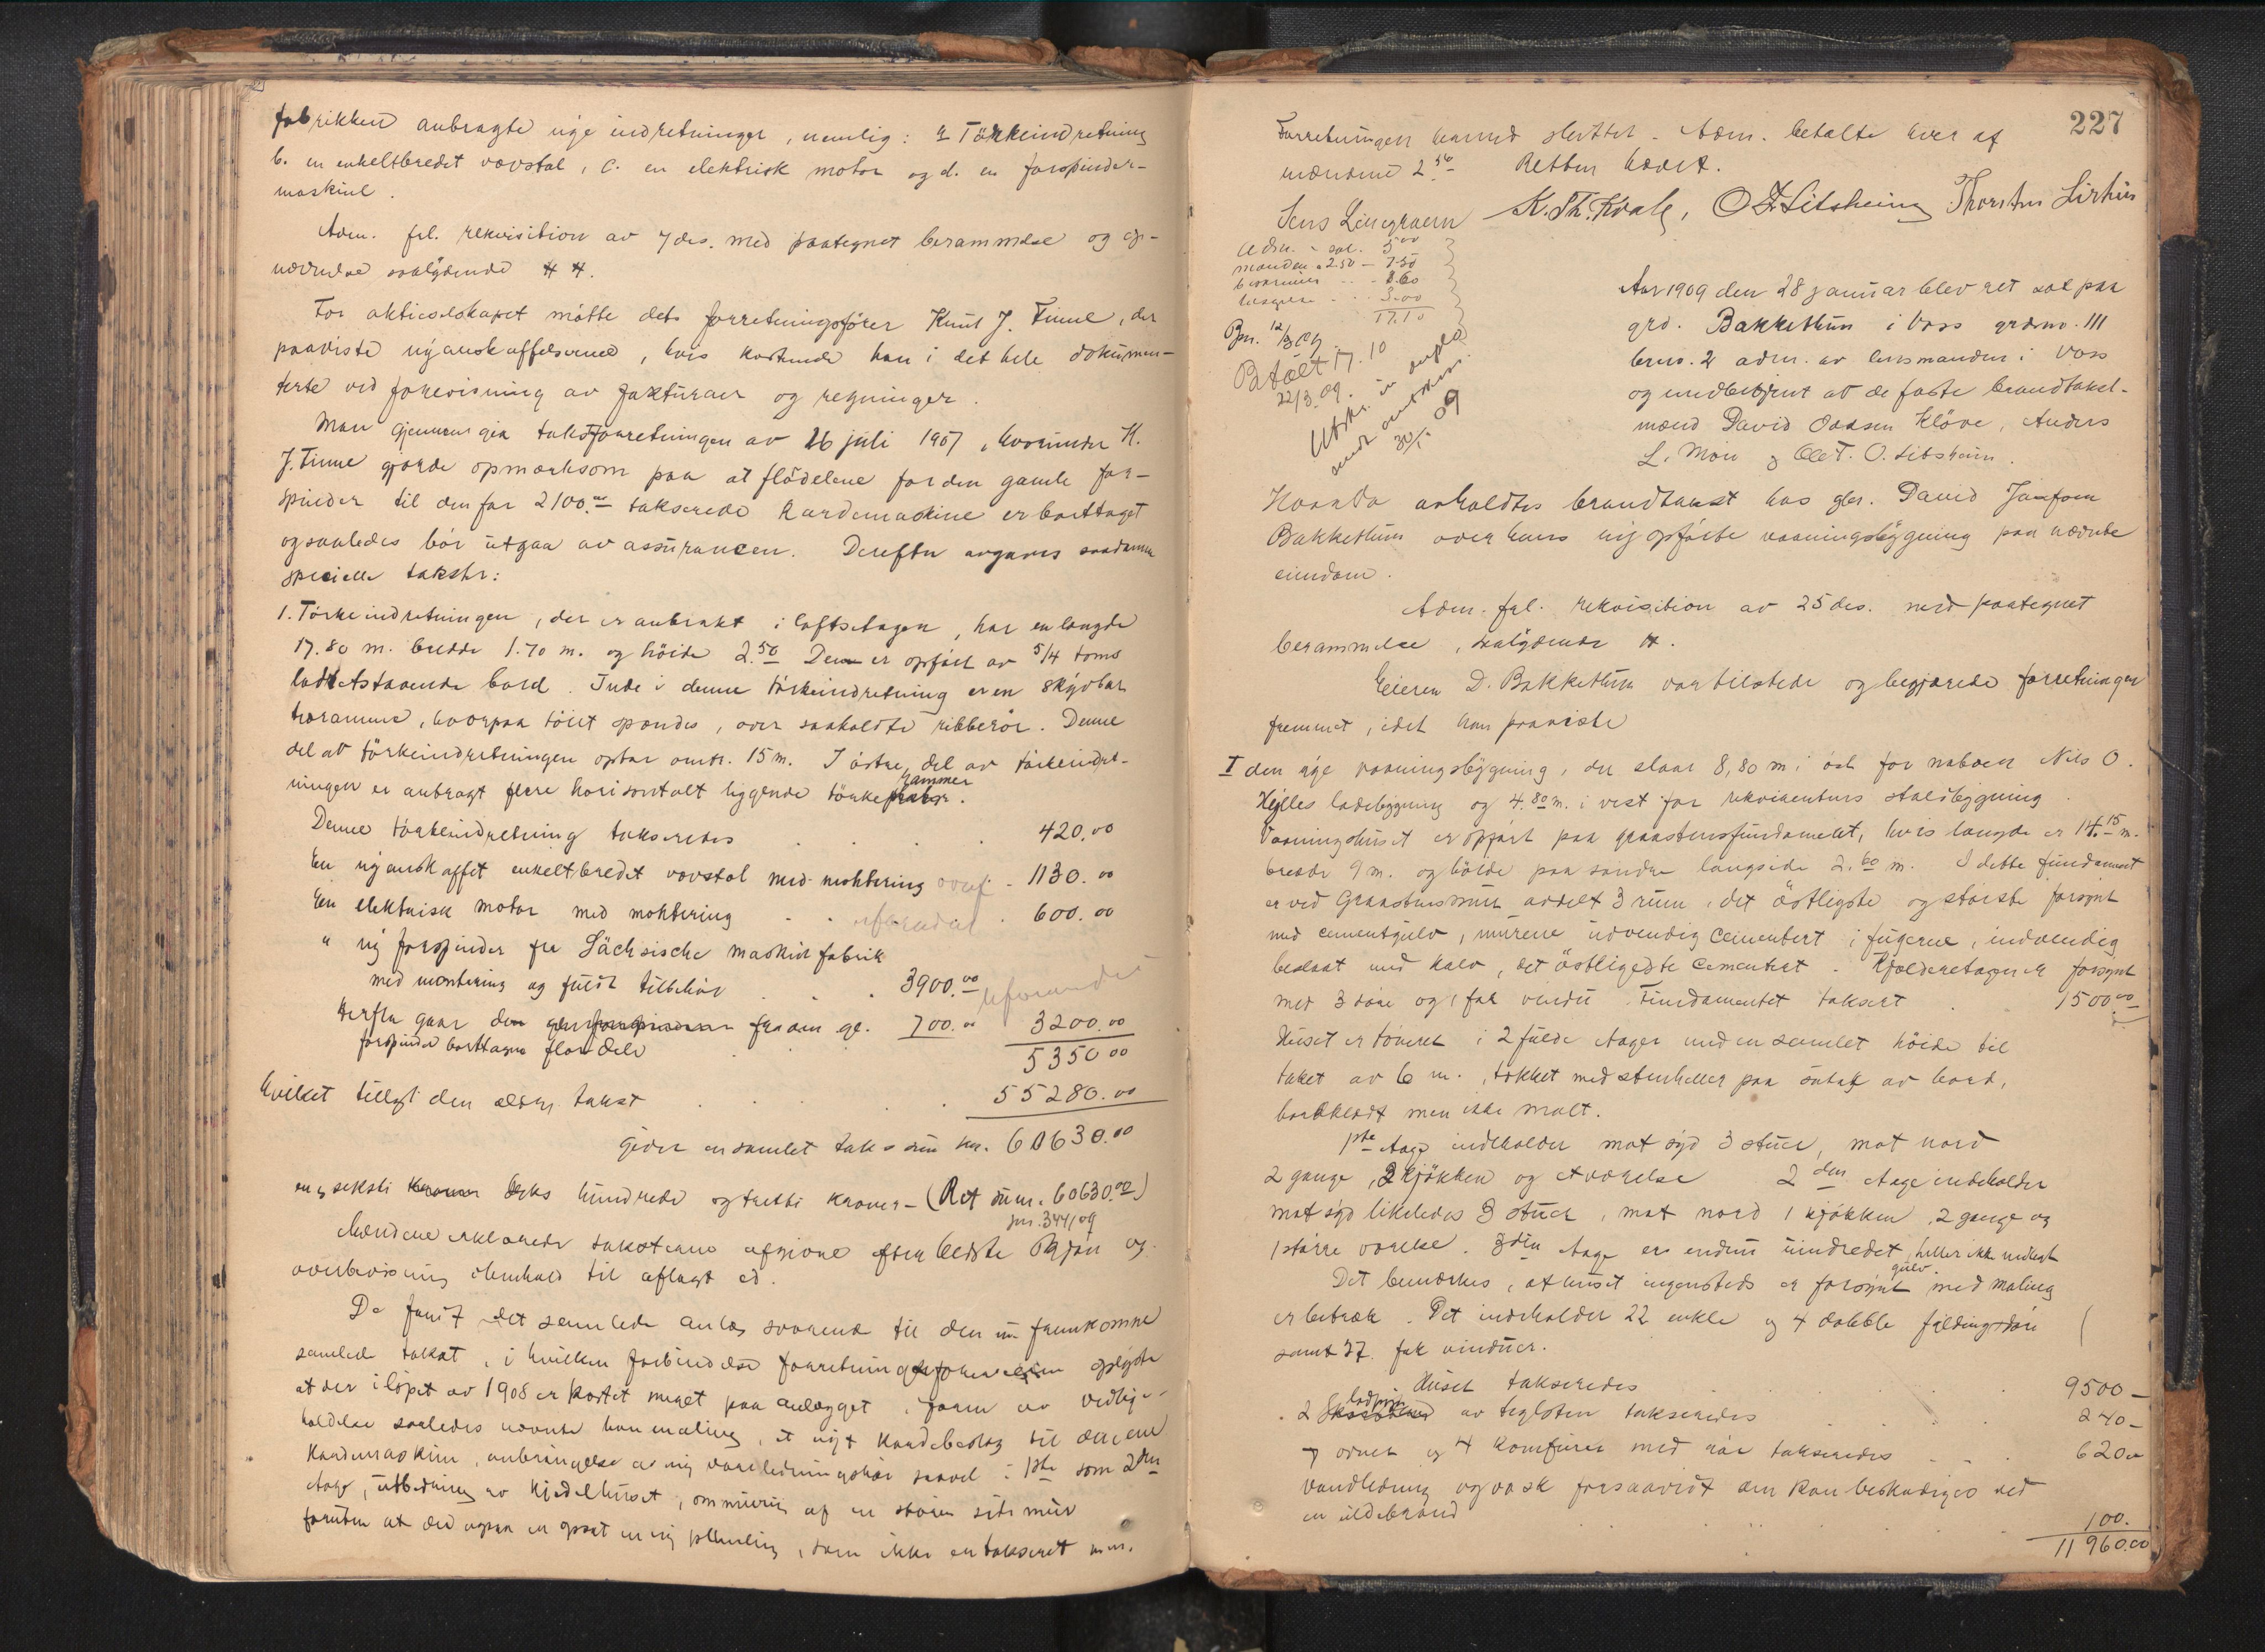 fabrikken anbragte nye indretninger, nemlig: a Törkeindretning
b. en enkeltbredet vævstol, c. en elektrisk motor og d. en forspinder-
maskine.
Adm. frl. rekvisition av 7 des. med paategnet berammelse og op-
nævnelse saalydende # #.
For aktieselskapet mötte dets forretningsförer Knut J. Finne, der
paaviste nyanskaffelserne, hvis kostende han i det hele dokumen-
terte ved forevisning av fakturaer og regninger.
Man gjennemgik takstforretningen av 16 juli 1907, hvorunder K.
J. Finne gjorde opmerksom paa at flödelene for den gamle for-
spinder til den for 2100.00 takserede kardemaskine er borttaget
og saaledes bör utgaa av assurancen. Derefter avgaves saadanne
specielle takster:
1. Törkeindretningen, der er anbrakt i loftsetagen, har en længde
17.80 m. bredde 1.70 m. og höide 2.50 Den er opfört av 5/4 toms
staaende bord. Inde i denne törkeindretning er en skyvbar
træramme, hvorpaa töiet spændes, over saakaldte ribberör. Denne
del av törkeindretningen optar omtr. 15 m. I östre del av törkeindret-
ningen er anbragt flere horisontalt liggende törkekammer.
Denne törkeindretning takseredes . . . . 420.00
En nyanskaffet enkeltbredet vævstol med montering - 1130.00
En elektrisk motor med montering . . uforandret . 600.00
" ny forspinder fra Sächsische maskinfabrik
med montering og fuldt tilbehör . . . 3900.00 uforandret
Herfra gaar den fra den gl. 700.00 3200.00
forspinder borttagne flordele . . 5350.00
Hvilket tillagt den ældre takst . . . 55280.00
Giver en samlet taks sum kr. 60630.00
seksti seks hundrede og tretti kroner - (Ret sum. 60630.00)
jnr. 344/09
Mændene erklærede taksterne afgivne efter bedste skjön og
overbevisning i henhold til aflagt ed.
De fandt det samlede anlæg svarende til den nu fremkomne
samlede takst, i hvilken forbindelse forretningsföreren oplyste
at der i löpet av 1908 er kostet meget paa anlægget i form av vedlige-
holdelse saaledes nævnte han maling, et nyt kardebeslag til den ene
kardemaskin, anbringelse av ny vandledningsrör saavel i 1ste som 2den
etage, utbedring av kjedelhuset, ommuring af en större sidemur
foruten at der ogsaa er opsat en ny , som ikke er taksert m. m.
227
Forretningen hermed sluttet - Adm. betalte hver af
mændene 2.50 Retten hævet.
Jens Lindgravn K. Th. Kvale, O F Litsheim Thorsten Lirhus
Adm. - sal. 5.00
mænden a 2.50 - 7.50
1.60
3.00
17.10
Bjn. 12/3 09.
Betalt 17.10
22/3.09.
Utskr. in duplo
sendt
30/1. 09
Aar 1909 den 28 januar blev ret sat paa
grd. Bakkethun i Voss grdsno. 111
brno. 2 adm. av lensmanden i Voss
og med betjent av de faste brandtakst-
mænd David Oddsen Klöve, Anders
L. Möen og Ole T. O. Litsheim.
Hvorda avholdtes brandtakst hos gbr. David Jonsson
Bakkethun over hans ny opförte vaaningsbygning paa nævnte
eiendom.
Adm. frl. rekvisition av 25 des. med paategnet
berammelse, saalydende #.
Eieren D. Bakkethun var tilstede og begjærede forretningen
fremmet, idet han paaviste
I den nye vaaningsbygning, der staar 8,80 m. i öst for naboen Nils O.
Hylles ladebygning og 4.80 m. i vest for rekvirentens staldbygning
Vaaningshuset er opfört paa graastensfundament, hvis længde er 14.15 m.
bredde 9 m. og höide paa söndre langside 2.60 m. I dette fundament
er ved Graastensmur avdelt 3 rum, det östligste og störste forsynt
med cementgulv, murene utvendig cementert i fugerne, indvendig
beslaat med kalk, det östligste cementert. Kjelderetagen er forsynt
med 3 döre og 1 fak vindu. Fundamentet taksert . 1500.00
Huset er tömret i 2 fulde etager med en samlet höide til
taket av 6 m. tækket med stenheller paa sutak av bord,
bordklædt men ikke malt.
1ste etage indeholder mot syd 3 stuer, mot nord
2 gange, 2 kjökken og et værelse 2den etage indeholder
mot syd likeledes 3 stuer, mot nord 1 kjökken, 2 gange og
1 större værelse. 3die etage er endnu uindredet, heller ikke nedlagt
gulv
Det bemerkes, at huset ingensteds er forsynt med maling
er betræk. Det indeholder 22 enkle og 4 dobble fyldingsdöre
samt 27 fak vinduer.
Huset takseredes . . . . 9500 -
2 ladpiper av teglsten takseredes . . . . 240 -
7 ovner og 4 komfurer med rör takseredes . . . 620 -
Vandledning og vask forsaavidt den kan beskadiges ved
en ildebrand . . . . 100.
11960.00